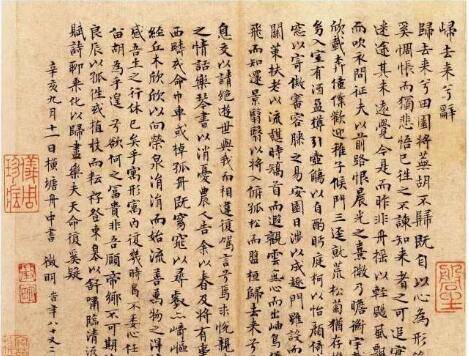 歸去來兮辭
歸去來兮田園將蕪胡不歸既自以心為形
奚惆悵而獨悲悟已往之不諫知來者之可追
迷途其未遠覺今是而昨非舟搖搖以輕颺風飄
而吹衣問征夫以前路恨晨光之熹微乃瞻衡宇
欣載奔僮僕歡迎稚子候門三逕就荒松菊猶存
幼入室有酒盈罇引壺觴以自酌眄庭柯以怡顏
窗以寄傲審容膝之易安園日涉以成趣門雖設而
關策扶老以流憩時矯首而遐觀雲無心而出岫鳥
飛而知還景翳翳以將入撫孤松而盤桓歸去來兮
息交以請絕遊世與我而相違復駕言兮焉求悅親
之情話樂琴書以消憂農人告余以春及將有事
西疇或命巾車或棹孤舟既窈窕以尋壑亦崎嶇
經丘木欣欣以向榮泉涓涓而始流善萬物之得
感吾生之行休已矣乎寓形宇內復幾時曷不委心任
留胡為乎遑遑兮欲何之富貴非吾願帝鄉不可期
良辰以孤往或植杖而耘耔登東皋以舒嘯臨清流
賦詩聊乘化以歸盡樂夫天命復奚疑
辛亥九月十一日橫塘舟中書 徵明